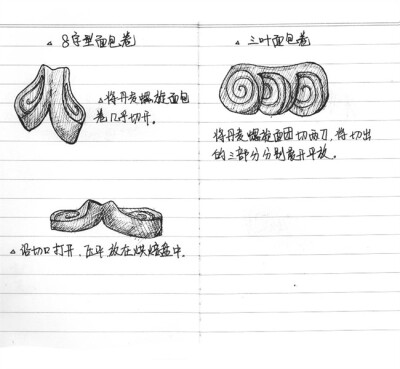 △ 8字型面包卷
△将丹麦螺旋面包
卷几乎切开。
△沿切口打开、压平放在烘焙盘中。
△ 三叶面包卷
将丹麦螺旋面团切两刀，将切出
的三部分分别展开平放。